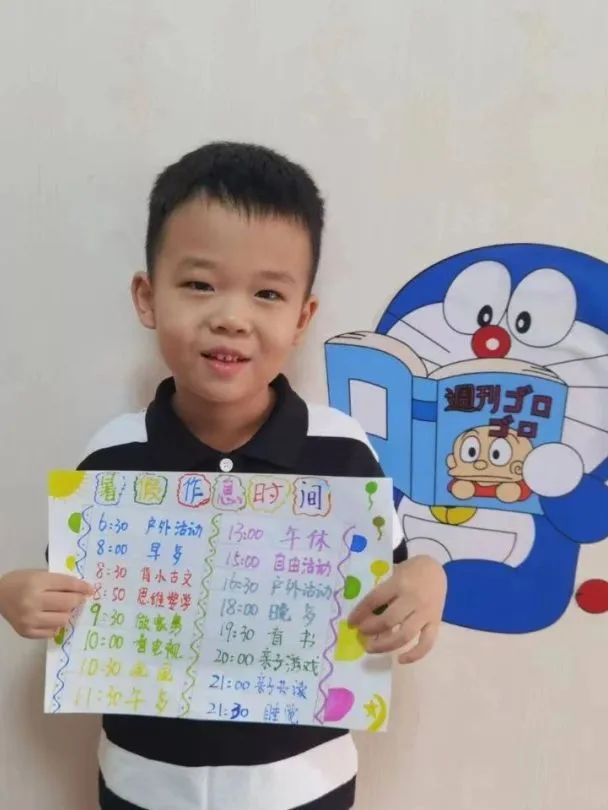 暑假作息时间
6:30 户外活动
8:00 早歺
8:30 背小古文
8:50 思维数学
9:30 做家务
10:00 看电视
10:30 画画
11:30 午歺
13:00 午休
15:00 自由活动
16:30 户外活动
18:00 晚歺
19:30 看书
20:00 亲子游戏
21:00 亲子共读
21:30 睡觉
週刊ゴロ
ゴロ